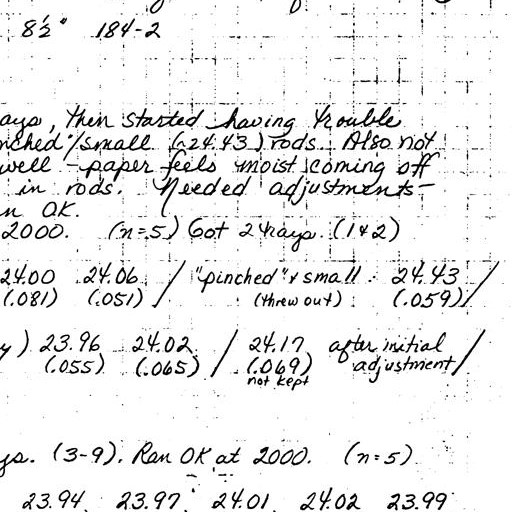 8½" 184-2
ays, then started having trouble
nched"/small (~24.43) rods. Also not
well - paper feels moist coming off
in rods. Needed adjustments-
n OK.
2000. (n=5) Got 2 trays. (1+2)
24.00 24.06 / "pinched" + small 24.43 /
(.081) (.051) / (threw out) (.059) /
y) 23.96 24.02 / 24.17 after initial /
(.055) (.065) / (.069) adjustment /
not kept
ys. (3-9). Ran OK at 2000. (n=5)
23.94 23.97 24.01 24.02 23.99